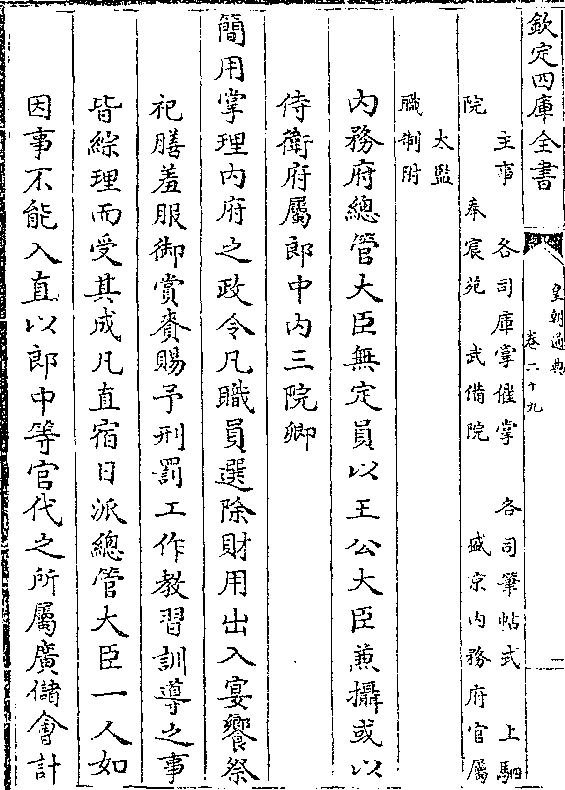 欽定四庫全書
皇朝通典
卷二十九
二
主事　各司庫掌催掌　各司筆帖式　上駟
院　奉宸苑　武備院　盛京内務府官屬
太監
職制附
内務府總管大臣無定員以王公大臣兼攝或以
侍衛府屬郎中内三院卿
簡用掌理内府之政令凡職員選除財用出入宴饗祭
祀膳羞服御賞賚賜予刑罰工作教習訓導之事
皆綜理而受其成凡直宿日派總管大臣一人如
因事不能入直以郎中等官代之所屬廣儲會計